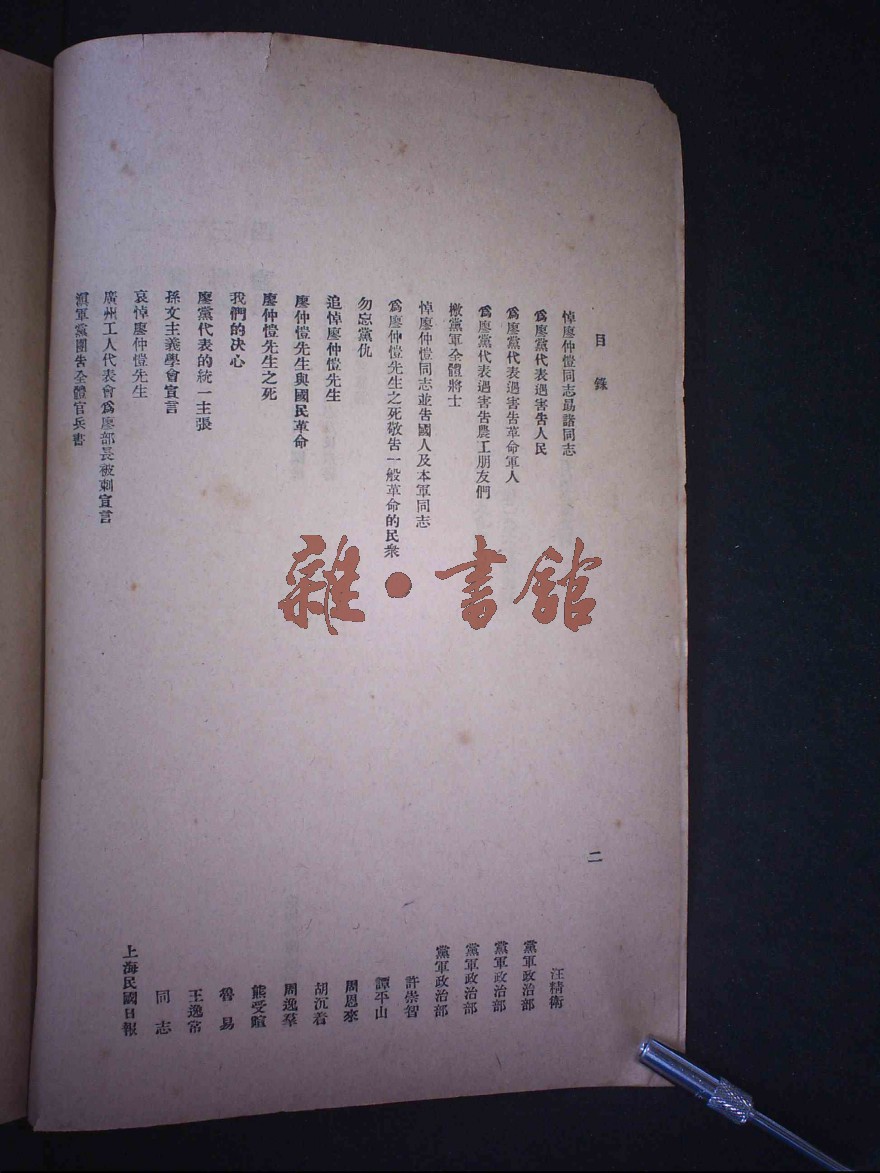 目錄
二
悼廖仲愷同志勗諸同志 汪精衛
爲廖黨代表遇害告人民 黨軍政治部
爲廖黨代表遇害告革命軍人 黨軍政治部
爲廖黨代表遇害告農工朋友們 黨軍政治部
檄黨軍全體將士 黨軍政治部
悼廖仲愷同志並告國人及本軍同志 許崇智
爲廖仲愷先生之死敬告一般革命的民衆 譚平山
勿忘黨仇 周恩來
追悼廖仲愷先生 胡沉着
廖仲愷先生與國民革命 周逸羣
廖仲愷先生之死 熊受暄
我們的决心 魯易
廖黨代表的統一主張 王逸常
孫文主義學會宣言 同志
哀悼廖仲愷先生 上海民國日報
廣州工人代表會爲廖部長被刺宣言
滇軍黨團告全體官兵書
雜·書館